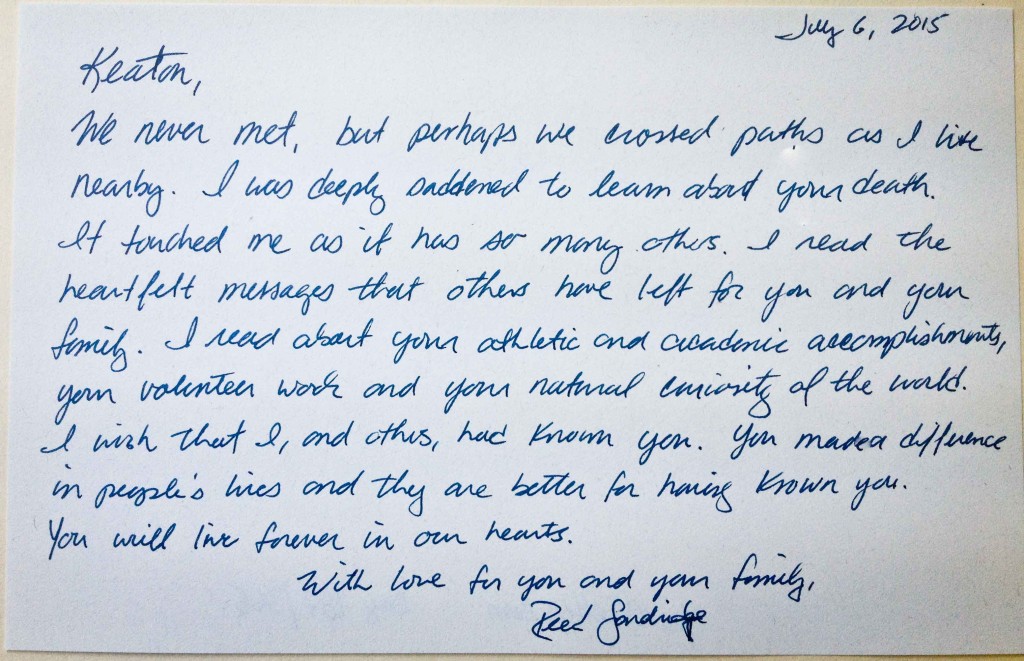 July 6, 2015
Keaton,
We never met, but perhaps we crossed paths as I live
nearby. I was deeply saddened to learn about your death.
It touched me as it has so many others. I read the
heartfelt messages that others have left for you and your
family. I read about your athletic and academic accomplishments,
your volunteer work and your natural curiosity of the world.
I wish that I, and others, had known you. You made a difference
in people's lives and they are better for having known you.
You will live forever in our hearts.
With love for you and your family,
Reed Sandridge